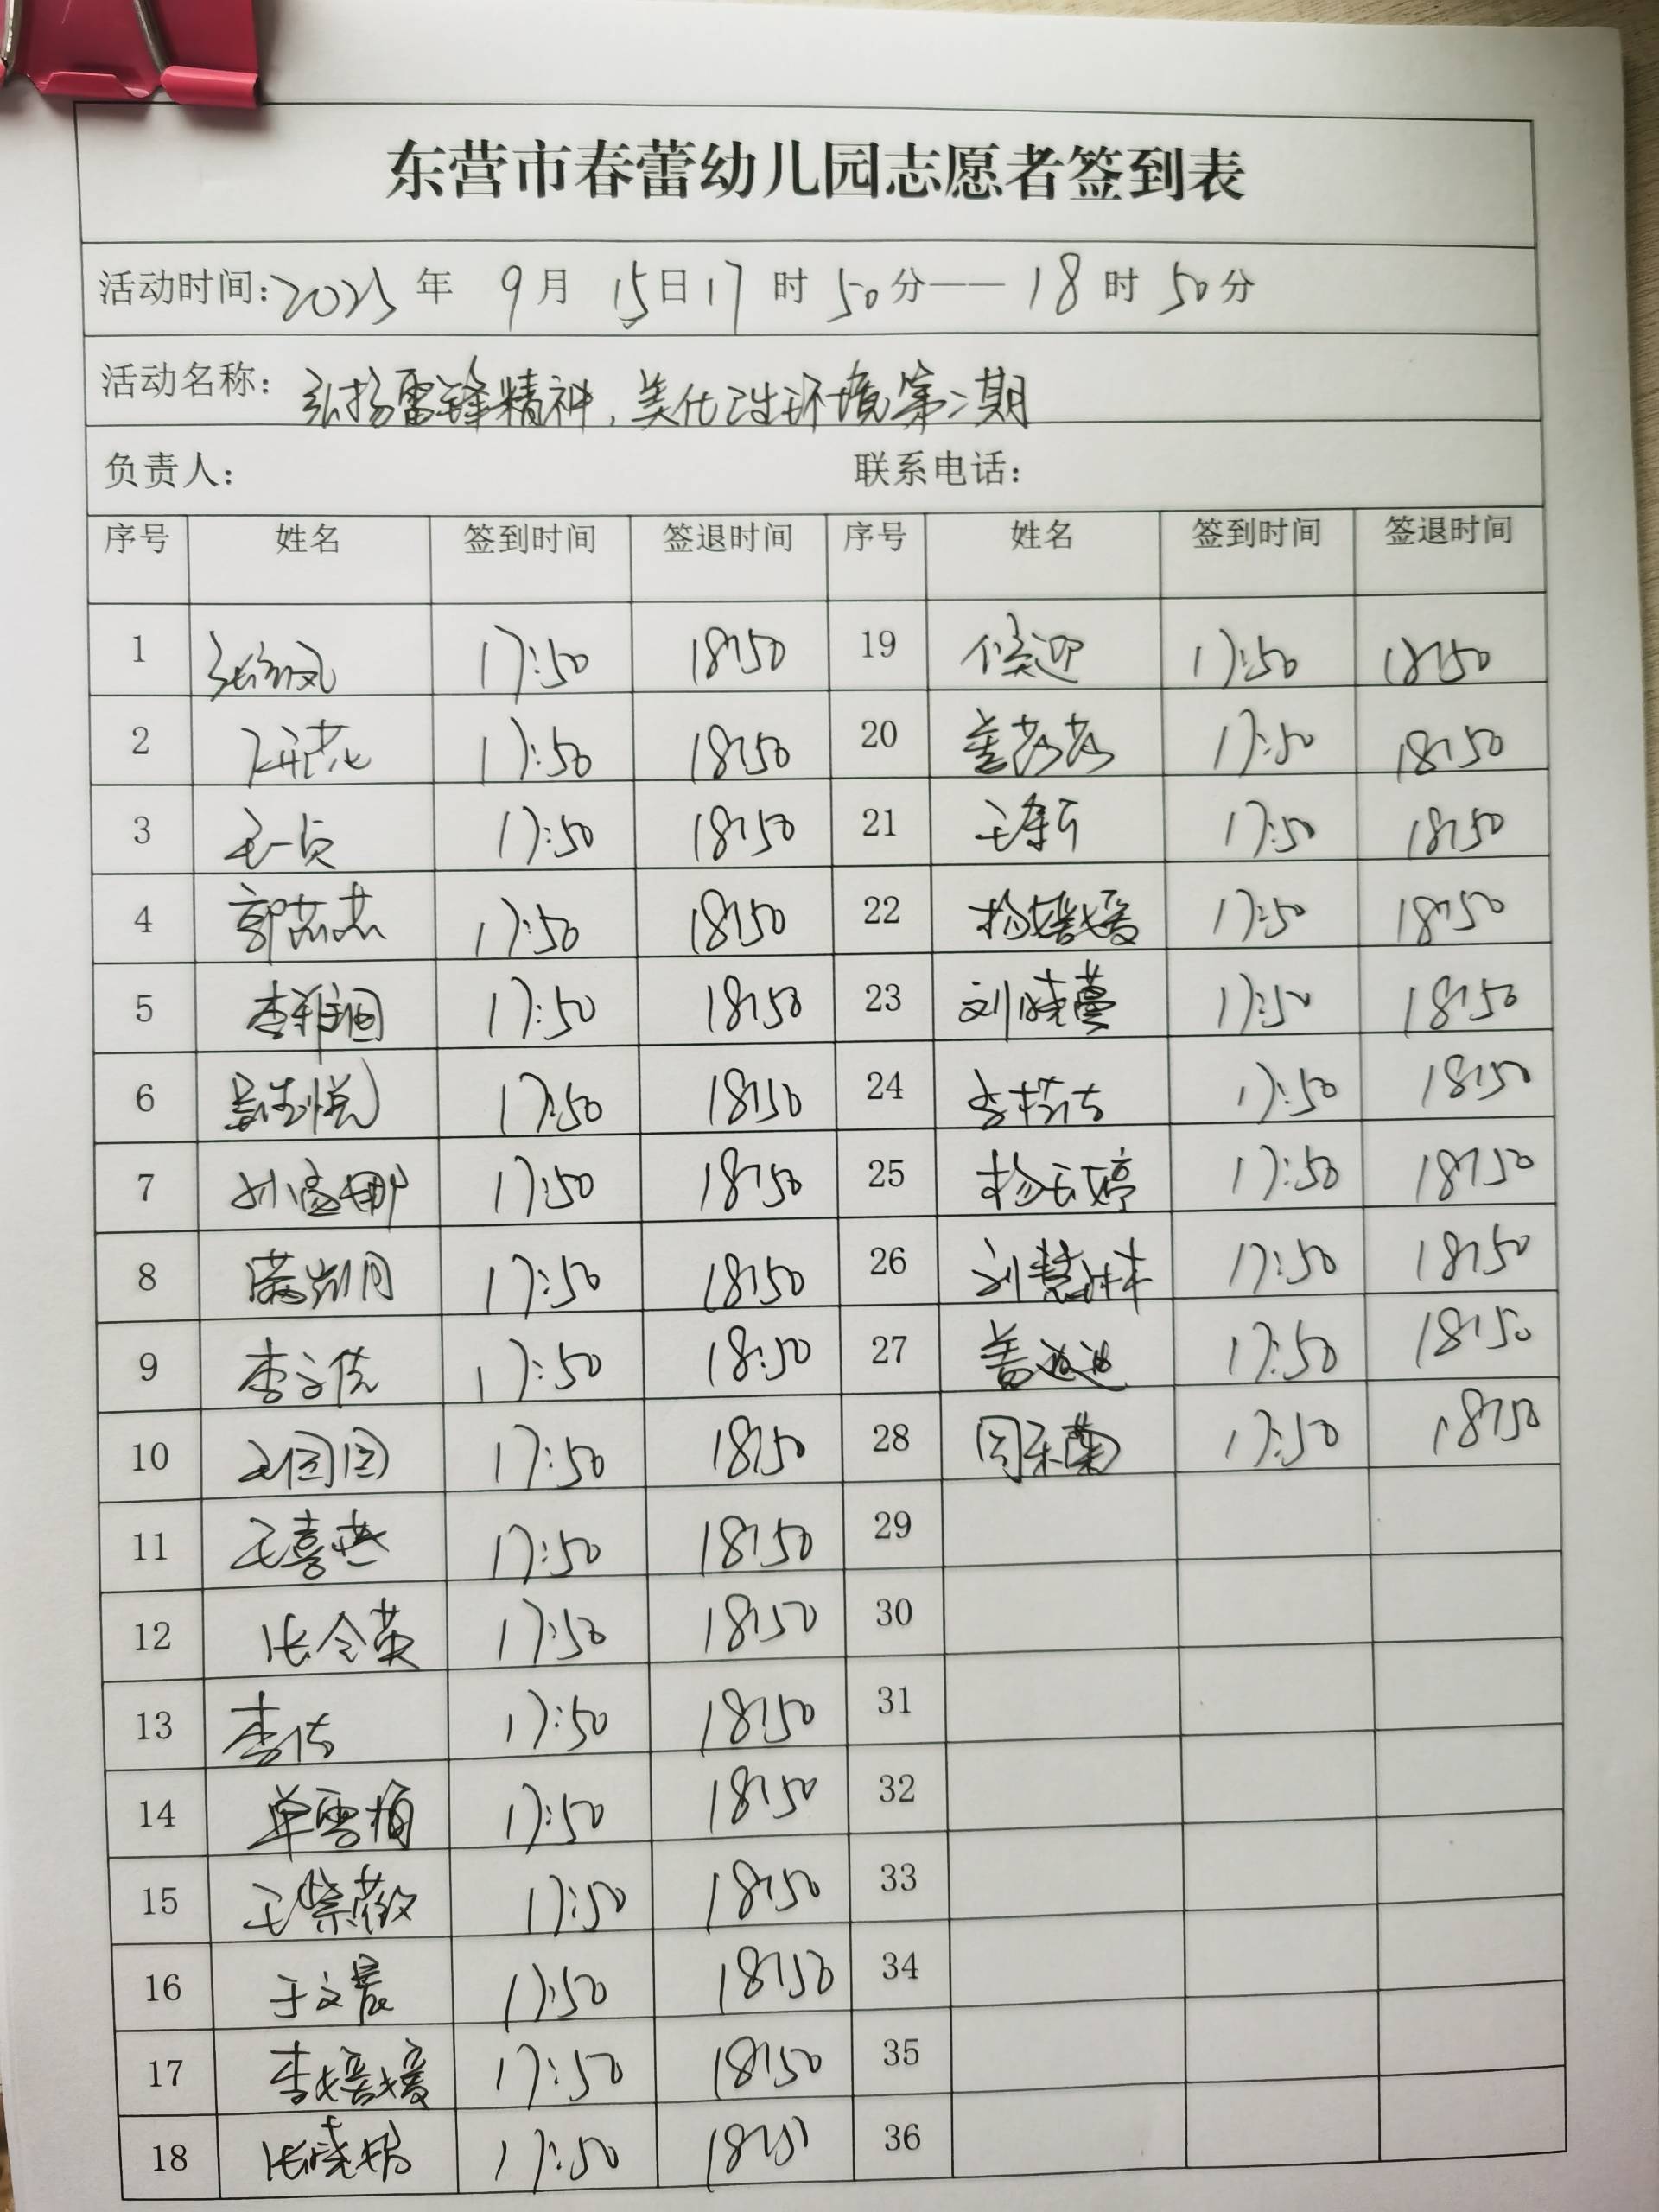 东营市春蕾幼儿园志愿者签到表
活动时间:2025年 9月 15日17时50分——18时50分
活动名称:弘扬雷锋精神,美化卫生环境第二期
负责人: 联系电话:
序号 姓名 签到时间 签退时间 序号 姓名 签到时间 签退时间
1 17:50 18:50 19 侯迎 17:50 18:50
2 17:50 18:50 20 17:50 18:50
3 王贞 17:50 18:50 21 17:50 18:50
4 郭苏苏 17:50 18:50 22 杨媛媛 17:50 18:50
5 17:50 18:50 23 刘晓蔓 17:50 18:50
6 17:50 18:50 24 17:50 18:50
7 17:50 18:50 25 杨玉婷 17:50 18:50
8 17:50 18:50 26 刘慧琳 17:50 18:50
9 17:50 18:50 27 盖迪迪 17:50 18:50
10 王圆圆 17:50 18:50 28 17:50 18:50
11 王喜燕 17:50 18:50 29
12 张令英 17:50 18:50 30
13 李倩 17:50 18:50 31
14 单雪梅 17:50 18:50 32
15 王紫薇 17:50 18:50 33
16 于文晨 17:50 18:50 34
17 李媛媛 17:50 18:50 35
18 张晓娟 17:50 18:50 36